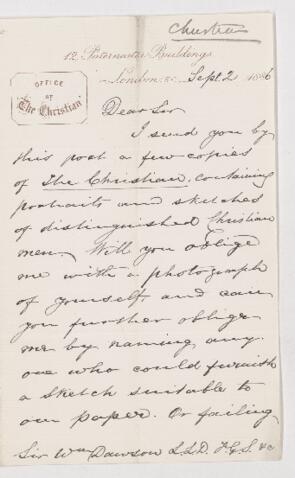 Christian
12 Paternoster Buildings
London E.C. Sept. 2 1886
OFFICE
OF
The Christian
Dear Sir
I send you by
this post a few copies
of The Christian containing
portraits and sketches
of distinguished Christian
men. Will you oblige
me with a photograph
of yourself and can
you further oblige
me by naming any
one who could furnish
a sketch suitable to
our paper. Or failing
Sir Wm Dawson LLD. F.G.S. &c